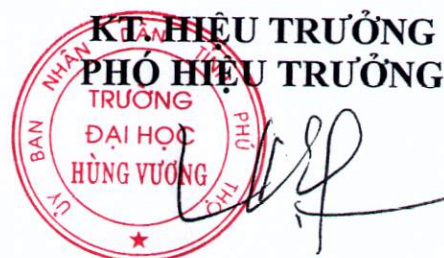 KT. HIỆU TRƯỞNG
PHÓ HIỆU TRƯỞNG
ỦY BAN NHÂN DÂN TỈNH PHÚ THỌ
TRƯỜNG
ĐẠI HỌC
HÙNG VƯƠNG